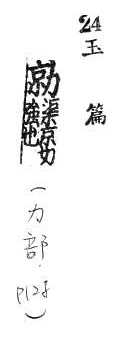 24 玉篇
勍 渠京切 強也
(力部.